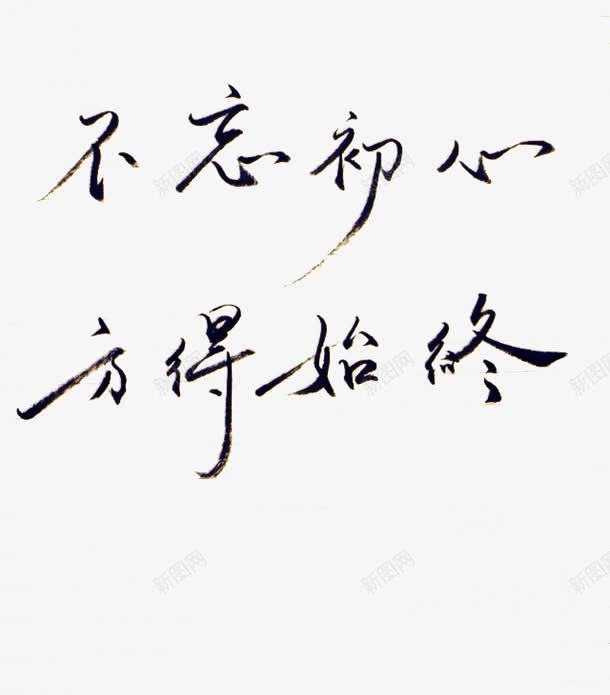 不忘初心
方得始終
新图网
新图网
新图网
新图网
新图网
新图网
新图网
新图网
新图网